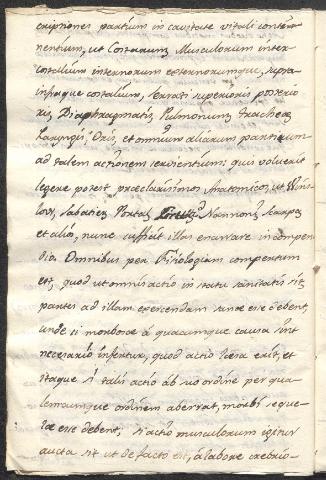 criptiones partium in cavitate vitali conten-
nentium, ut Costarum, Musculorum inter-
costalium internorum externorumque, supra
infraque costalium, Serrati superioris posterio
ris, Diaphragmatis, Pulmonum, Tracheæ,
Laryngis, Oris, et omnium aliarum partium
ad talem actionem servientium; quis voluerit
legere potest præclarissimos Anatomicos, ut Wins-
low, Sabatier, Portal, Nannoni, Scarpa,
et alios, nunc sufficit illas enarrare in compen
dio. Omnibus per Fisiologiam compertum
est, quod ut omnis actio in statu sanitatis sit,
partes ad illam exercendam sanæ esse debent,
unde si morbosæ à quacumque causa sint
necessario infertur, quod actio læsa erit, et
itaque si talis actio ab suo ordine per qua-
lemcumque ordinem aberrat, morbi seque-
læ esse debent; si actio musculorum igitur
aucta sit ut de facto est, à labore crebrio-